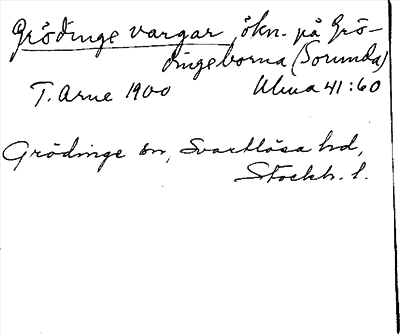 Grödinge vargar, ökn. på Grö-
dingeborna (Sorunda)
T. Arne 1900 Ulma 41:60
Grödinge sn, Svartlösa hd,
Stockh. l.